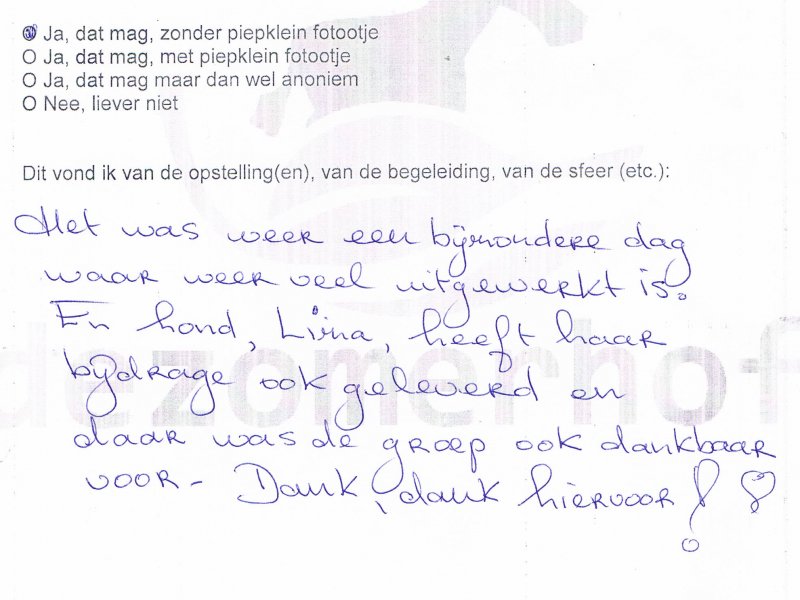 Ja, dat mag, zonder piepklein fotootje
O Ja, dat mag, met piepklein fotootje
O Ja, dat mag maar dan wel anoniem
O Nee, liever niet
Dit vond ik van de opstelling(en), van de begeleiding, van de sfeer (etc.):
Het was weer een bijzondere dag
waar weer veel uitgewerkt is.
En hond, Livna, heeft haar
bijdrage ook geleverd en
dezomerhof
daar was de groep ook dankbaar
voor - Dank, dank hiervoor!